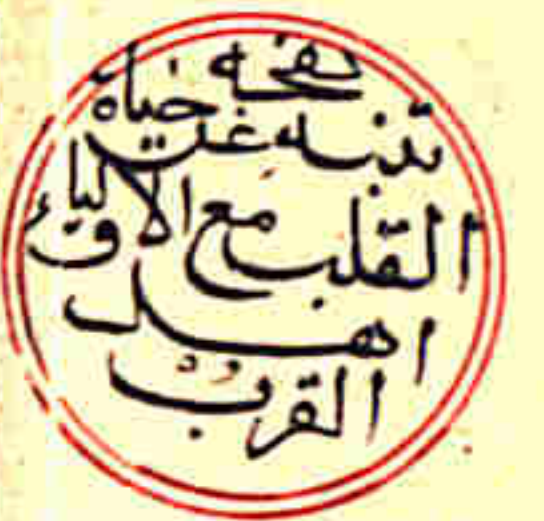 نفحه
تنبه عن حياة
القلب مع الاولياء
اهل
القرب